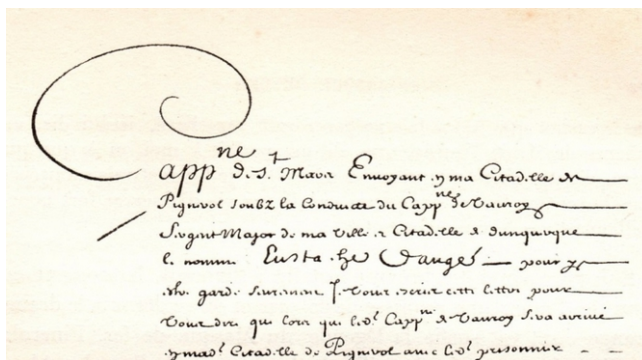 Cappne de St Mars Envoyant en ma Citadelle de
Pignerol soubz la Conduicte du Cappne de Vauroy
Sergent Major de ma Ville et Citadelle de dunquerque
le nommé Eustache Dauger pour y
estre gardé seurement Je vous escris cette lettre pour
vous dire que lors que led. Cappne de Vauroy sera arrivé
en mad. Citadelle de Pignerol avec led. prisonnier